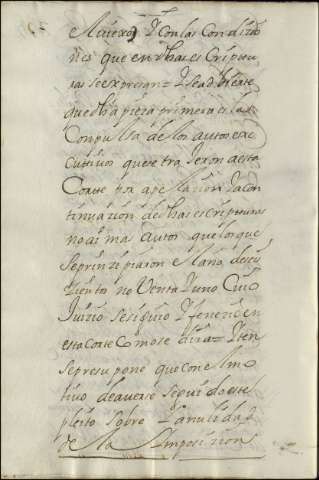 y con las Condizio
nes que en dhas escriptu
ras se expresan = y se adbierte
que dha pieza primera es la
Conpulsa de los autos exe
cutivos que se trajeron a esta
Corte por apelazion y a con
tinuazion de dhas escripturas
no ai mas autos que los que
se prinzipiaron el año de seis
zientos noventa y uno Cuio
Juizio se siguio y fenezio en
esta Corte Como se dira = y ten
se presupone que con el mo
tivo de averse seguido este
pleito sobre la nulidad
de la Imposizion